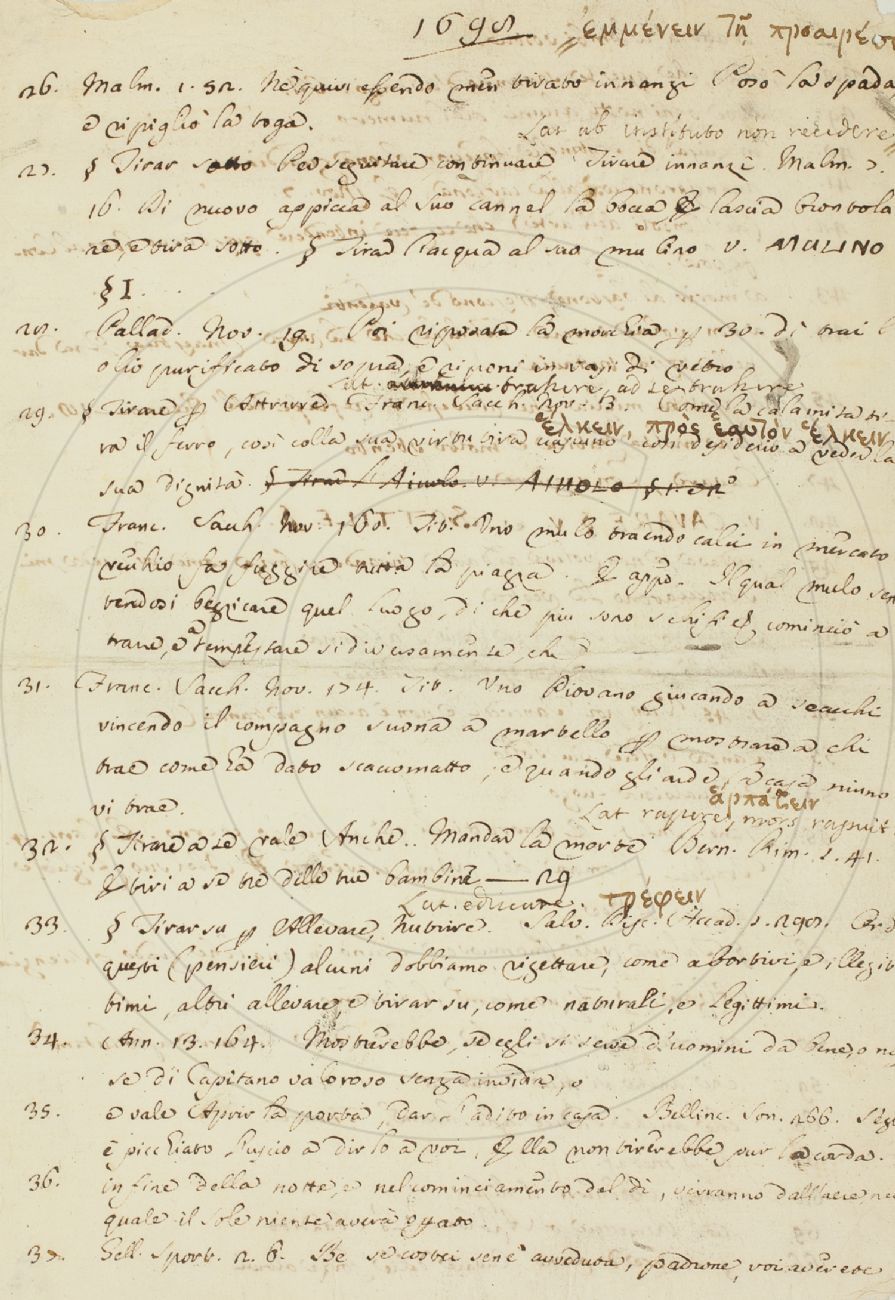 1698 ἐμμένειν τῇ προαιρέσ
26. Malm. 1. 52. Nè quivi essendo men tirato innanzi Posò la spada,
e ripigliò la toga.
Lat ab instituto non recedere
27. § Tirar sotto Per seguitare continuare Tirare innanzi. Malm. 7.
16. Di nuovo appicca al suo cannel la bocca E lascia brontola
re, e tira sotto. § Tirar l'acqua al suo mulino v. MULINO
§ I.
28. Pallad. Nov. 19. Poi riposata la morchia, p 30. dì trai l
olio purificato di sopra, e riponi in vasi di vetro
Lat. trahere, ad se trahere
29. § Tirare p Attrarre. Franc. Sacch. Nov. Come la calamita ti-
ἕλκειν, πρὸς ἑαυτὸν ἕλκειν
ra il ferro, così colla sua virtù tira ciascuno con desiderio a veder la
sua dignità.
30. Franc. Sacch. Nov. 160. Tit. Uno mulo traendo calci in mercato
vecchio fa fuggire tutta la piazza. E app. Il qual mulo sen
tendosi bezzicare quel luogo, di che più sono schifi, cominciò a
trarre, e a tempestare sì diversamente, che
31. Franc. Sacch. Nov. 174. Tit. Uno Piovano giucando a scacchi
vincendo il compagno suona a martello p mostrare a chi
trae come ha dato scaccomatto, e quando gli arde, a casa niuno
vi trae.
ἁρπάζειν
Lat rapere, mors rapuit
32. § Tirare a se vale Anche. Mandar la morte Bern. Rim. 1. 41.
E tiri a se tre delle tue bambine — 29
Lat. educare. τρέφειν
33. § Tirar su p Allevare, Nutrire. Salv. Disc. Accad. 1. 290. Or d
questi (pensieri) alcuni dobbiamo rigettare, come abortivi, e illegit
timi, altri allevare, e tirar su, come naturali, e legittimi.
34. Ann. 13. 164. Mostrerebbe, se egli si serve d'uomini da bene, o n
se di Capitano valoroso senza invidia, o
35. e vale Aprir la porta, dar l'adito in casa. Bellinc. Son. 266. Segl
è picchiato l'uscio a dirlo a voi, Ella non tirerebbe pur la corda.
36. in fine della notte, e nel cominciamento del dì, verranno dall'aere, ne
quale il sole niente averà
37. Gell. Sport. 2. 6. Be se costei sen'è avveduta, padrone, voi averete